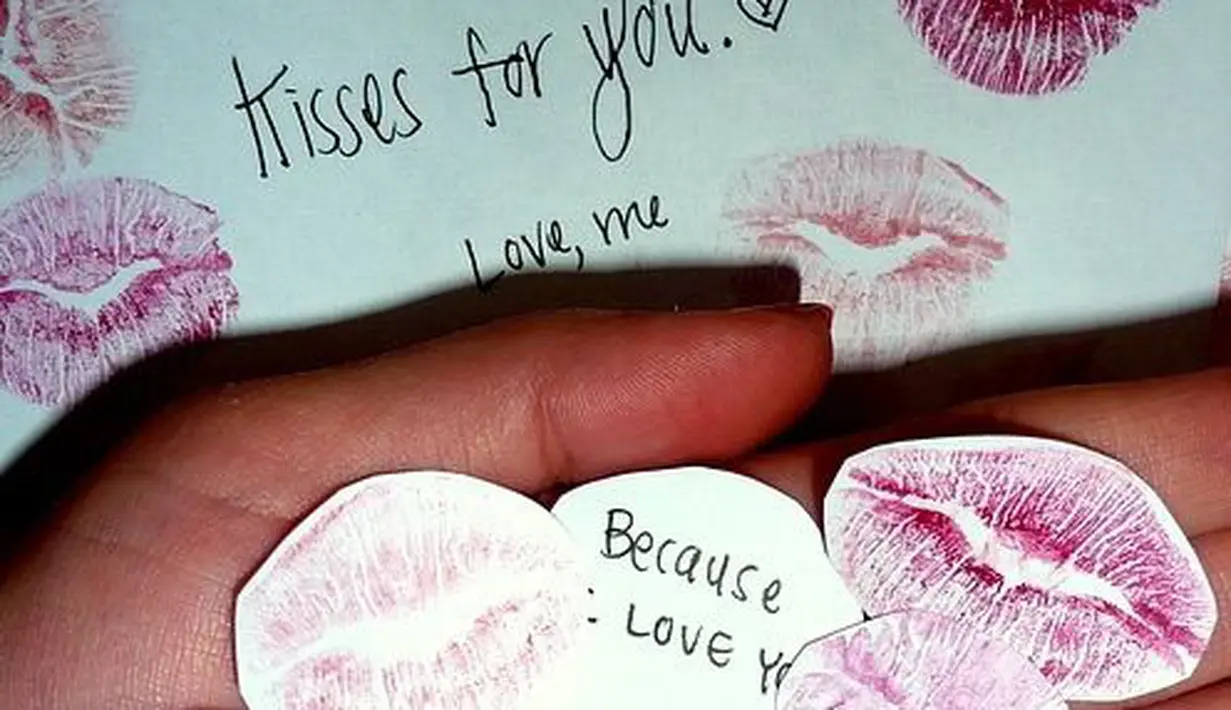 Kisses for you. ♡
Love, me
Because
: LOVE YO